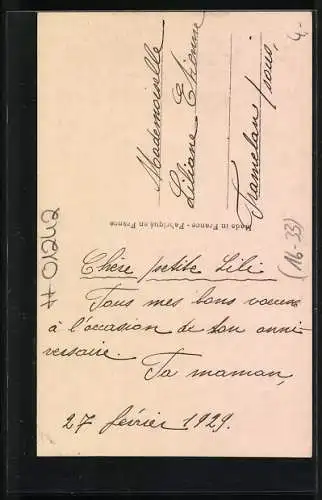 Chère petite Lili
Tous mes bons voeux
à l'occasion de ton anni-
versaire.
Ta maman,
27 février 1929.
Mademoiselle
Liliane Etienne
Tramelan /sous,
Made in France - Fabriqué en France
4.-
(16-33)
#01242